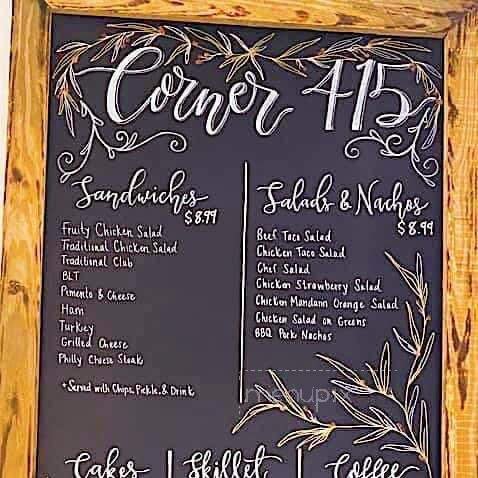 Corner 415
Sandwiches
$8.99
Fruity Chicken Salad
Traditional Chicken Salad
Traditional Club
BLT
Pimento & Cheese
Ham
Turkey
Grilled Cheese
Philly Cheese Steak
+Served with Chips, Pickle, & Drink
Salads & Nachos
$8.99
Beef Taco Salad
Chicken Taco Salad
Chef Salad
Chicken Strawberry Salad
Chicken Mandarin Orange Salad
Chicken Salad on Greens
BBQ Pork Nachos
menupix
Cakes | Skillet | Coffee